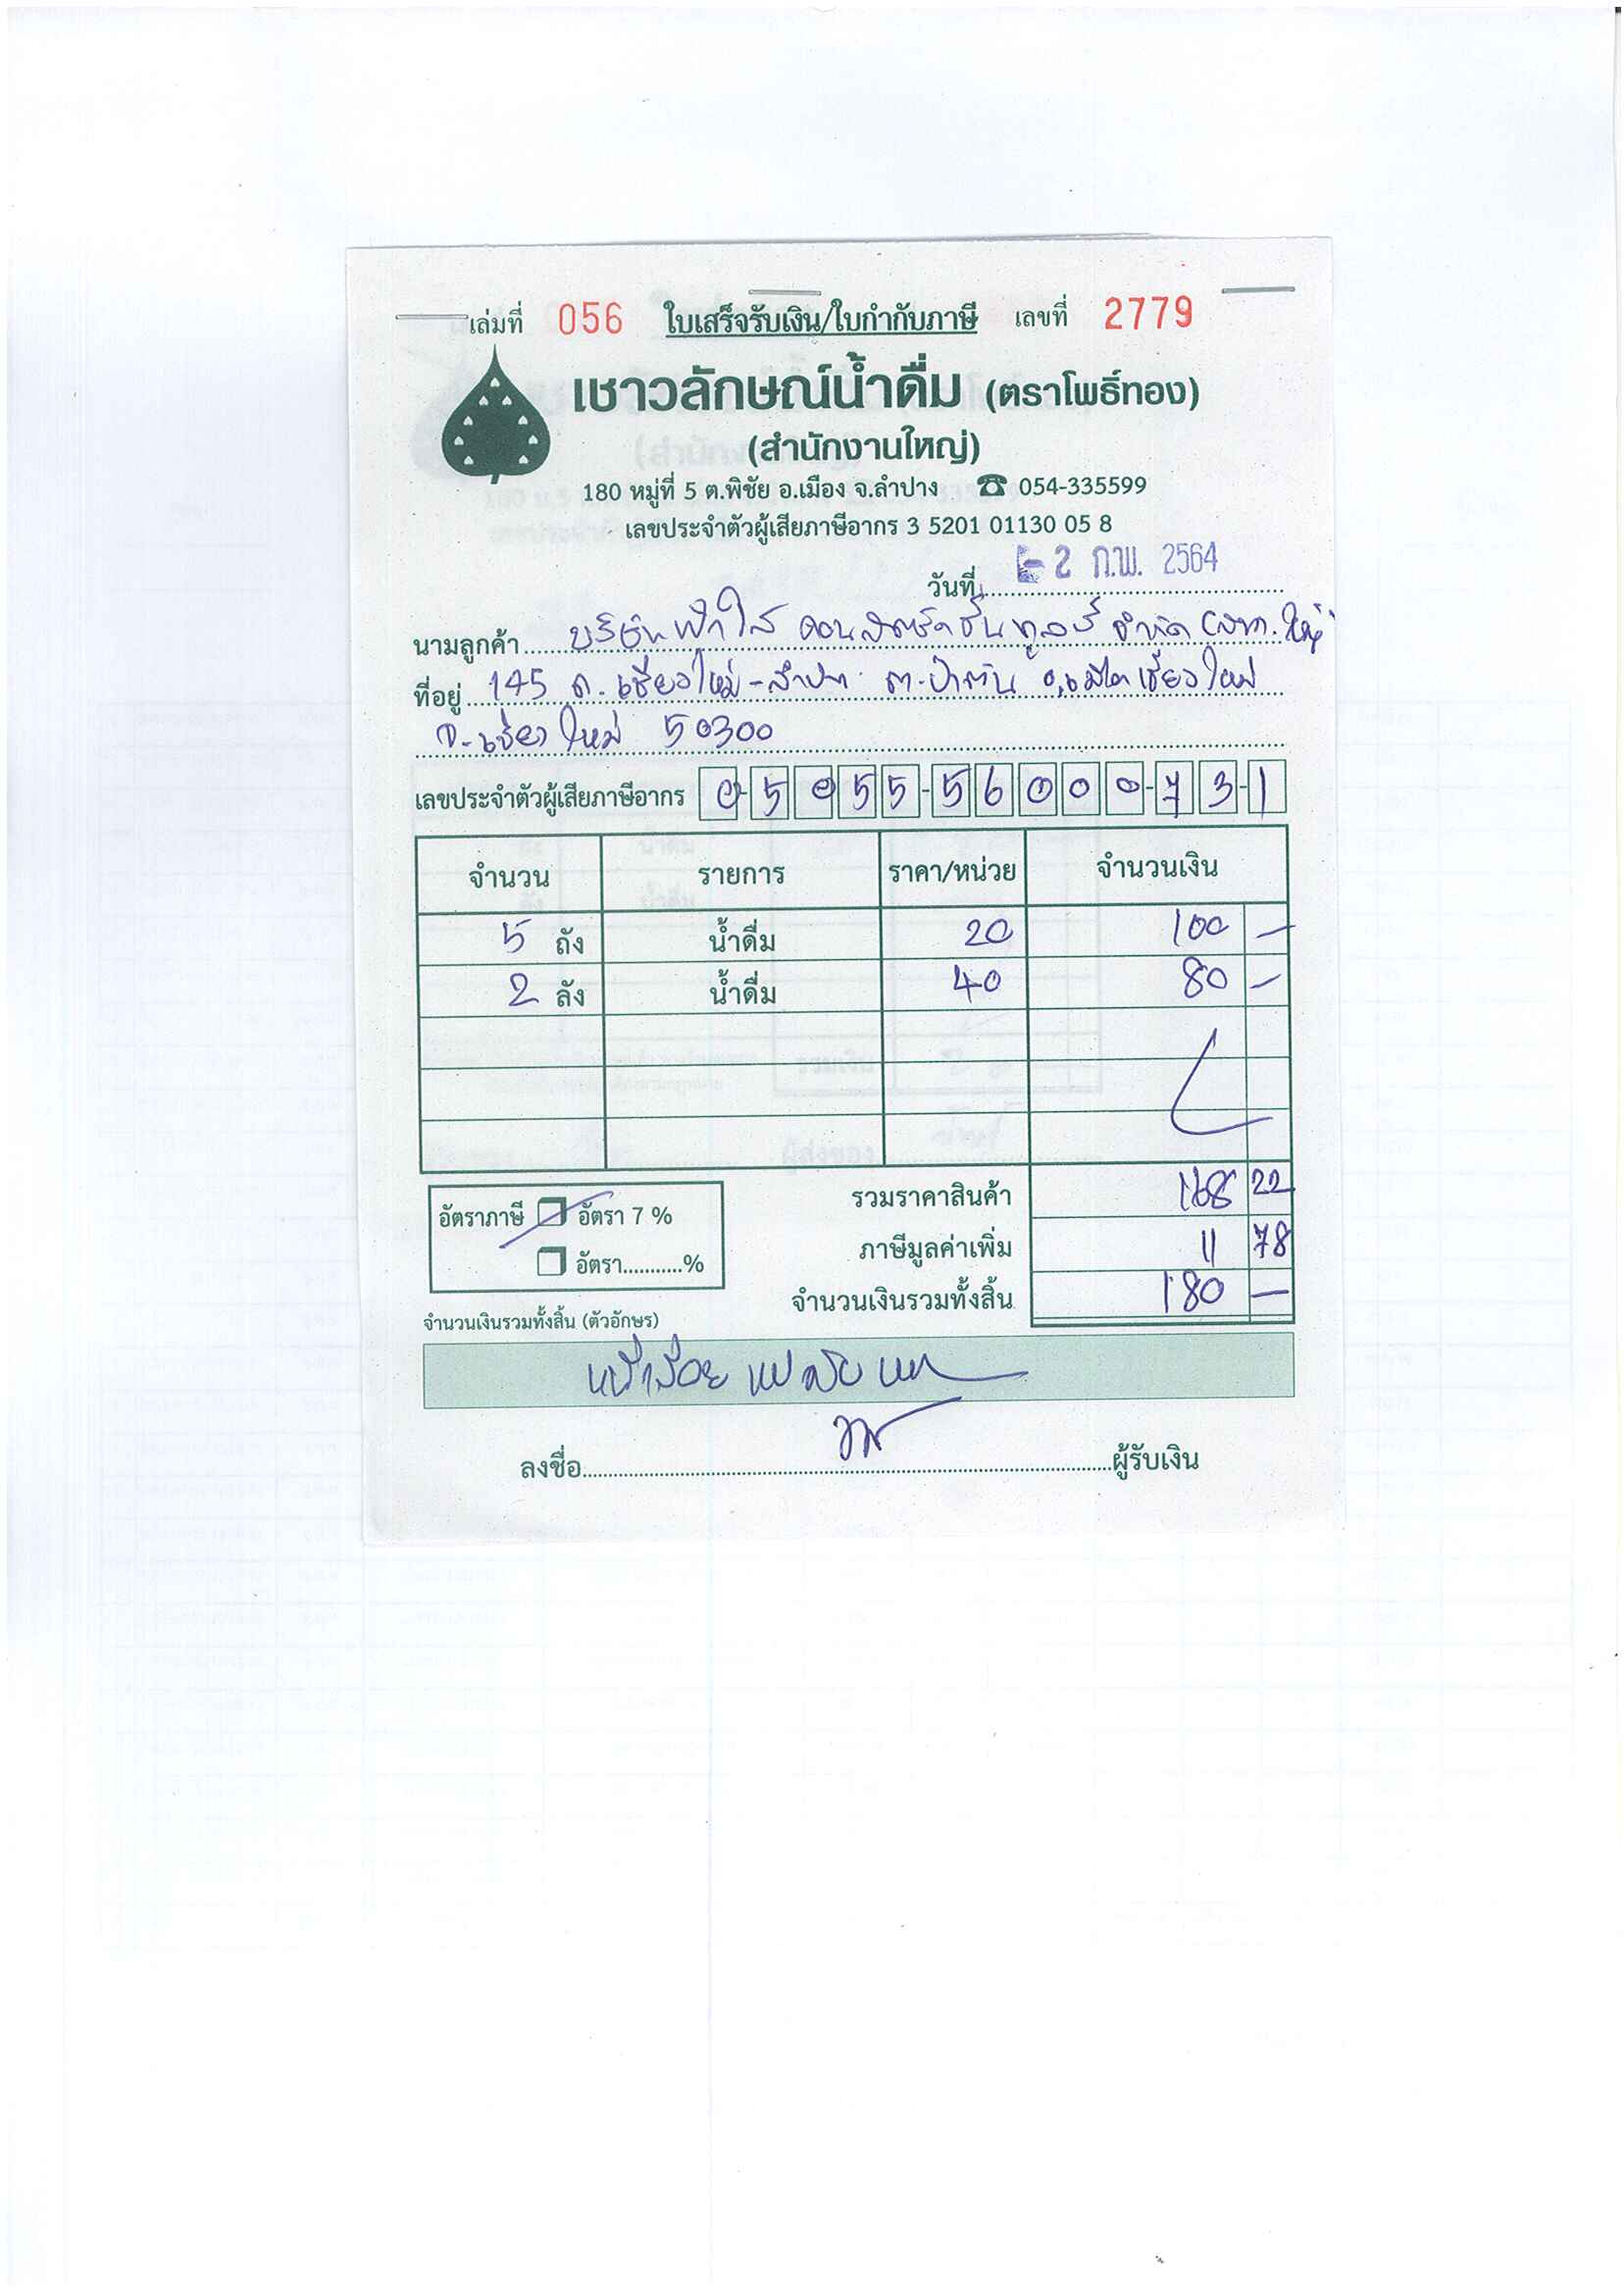 เล่มที่ 056 ใบเสร็จรับเงิน/ใบกำกับภาษี เลขที่ 2779
เชาวลักษณ์น้ำดื่ม (ตราโพธิ์ทอง)
(สำนักงานใหญ่)
180 หมู่ที่ 5 ต.พิชัย อ.เมือง จ.ลำปาง ☎ 054-335599
เลขประจำตัวผู้เสียภาษีอากร 3 5201 01130 05 8
วันที่ - 2 ก.พ. 2564
นามลูกค้า บริษัท ฟ้าใส คอนสตรัคชั่น ทูลส์ จำกัด (สนง.ใหญ่
ที่อยู่ 145 ถ.เชียงใหม่-ลำปาง ต.ป่าตัน อ.เมืองเชียงใหม่
จ.เชียงใหม่ 50300
เลขประจำตัวผู้เสียภาษีอากร 0-5055-56000-73-1
จำนวน รายการ ราคา/หน่วย จำนวนเงิน
5 ถัง น้ำดื่ม 20 100 -
2 ลัง น้ำดื่ม 40 80 -
รวมราคาสินค้า 168 22
อัตราภาษี อัตรา 7 %
ภาษีมูลค่าเพิ่ม 11 78
อัตรา...........%
จำนวนเงินรวมทั้งสิ้น 180 -
จำนวนเงินรวมทั้งสิ้น (ตัวอักษร)
หนึ่งร้อยแปดสิบบาท
ลงชื่อ ผู้รับเงิน